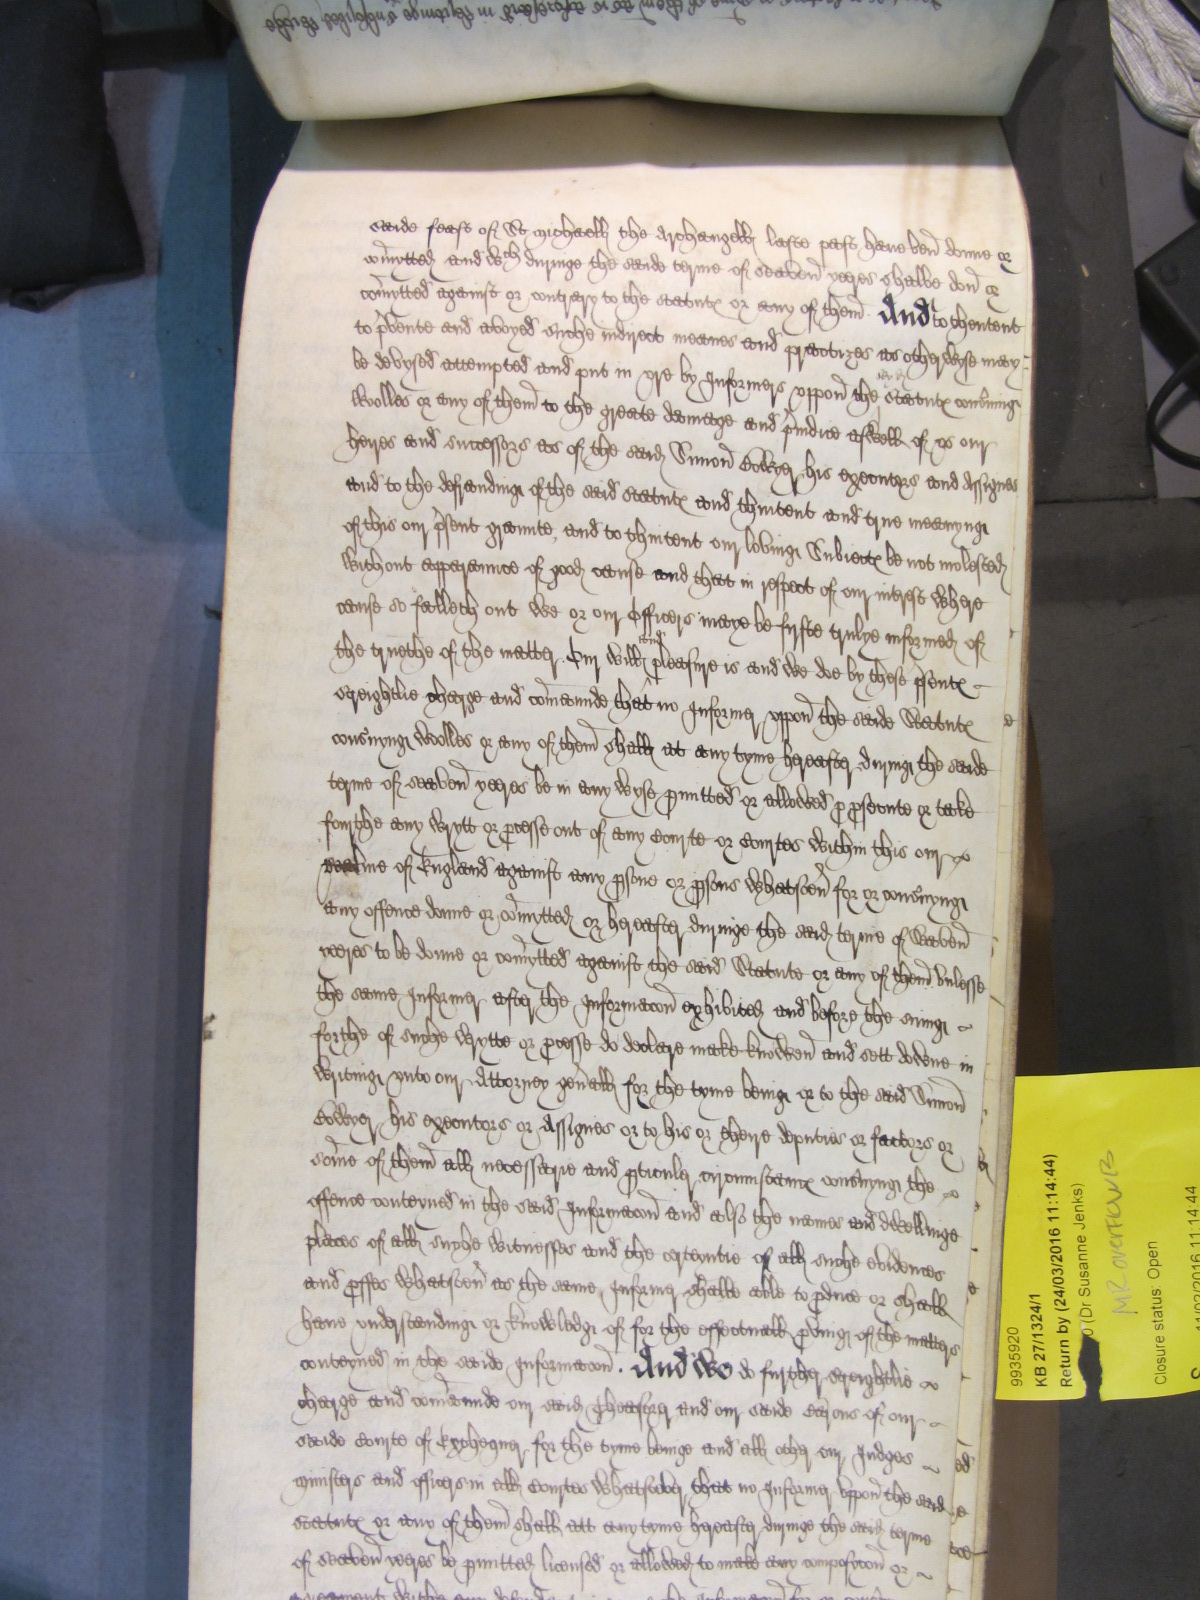 saide feast of St Michaell the Archangell laste past have ben donne or
comytted and wch duringe the saide terme of seaven yeres shalbe don or
comytted against or contrary to the statutes or any of them. And to thentent
to pvente and avoyed suche indirect meanes and practizes as otherwyse may
be devysed attempted and put in vre by Informers vppon the statutes concerning
Wolles or any of them to the greate damage and preiudice aswell of vs our
heires and successors as of the said Simon Bowyer his executors and Assignes
and to the defraudinge of the said statutes and thintent and true meanynge
of this our psent graunte, and to thintent our lovinge Subiectes be not molested
without apparaunce of good cause and that in respect of our interest where
cause so falleth out we or our Officers maye be firste trulye informed of
the truethe of the matter. Our will and pleasure is and we doe by these psentes
streightlie charge and comaunde that no Informer vppon the saide Statutes
concernynge Wolles or any of them shall at any tyme hereafter duringe the saide
terme of seaven yeres be in any wyse pmitted or allowed to psecute or take
fourthe any wrytt or pcesse out of any Courte or Courtes within this our
realme of England against any psone or psons whatsoever for or concernynge
any offence donne or comytted or hereafter duringe the said terme of Seaven
yeres to be donne or comytted against the said Statute or any of them vnlesse
the same Informer after the Informacon exhibited and before the suinge
forthe of suche wrytte or pcesse do declare make knowen and sett downe in
writinge vnto our Attorney genall for the tyme beinge or to the said Simon
Bowyer his executors or Assignes or to his or theire deputies or factors or
some of them all necessarie and pticuler circumstances concernynge the
offence conteyned in the said Informacon and also the names and dwellinge
places of all suche witnesses and the certeyntie of all suche evidences
and proffes whatsoever as the same Informer shalbe able to pduce or shall
have understandinge or knowledge of for the effectuall pvinge of the matters
conteyned in the saide Informacon. And We do further streightlie
charge and comaunde our said Theasorer and our saide Barons of our
saide Courte of Exchequer for the tyme beinge and all other our Judges
ministers and officers in all Courtes whatsoever that no Informer vppon the said
Statutes or any of them shall att any tyme hereafter duringe the said terme
of Seaven yeres be pmitted licensed or allowed to make any composycon or
9935920
KB 27/1324/1
Return by (24/03/2016 11:14:44)
(Dr Susanne Jenks)
MR OVERTOWN B
Closure status: Open
11/02/2016 11:14:44